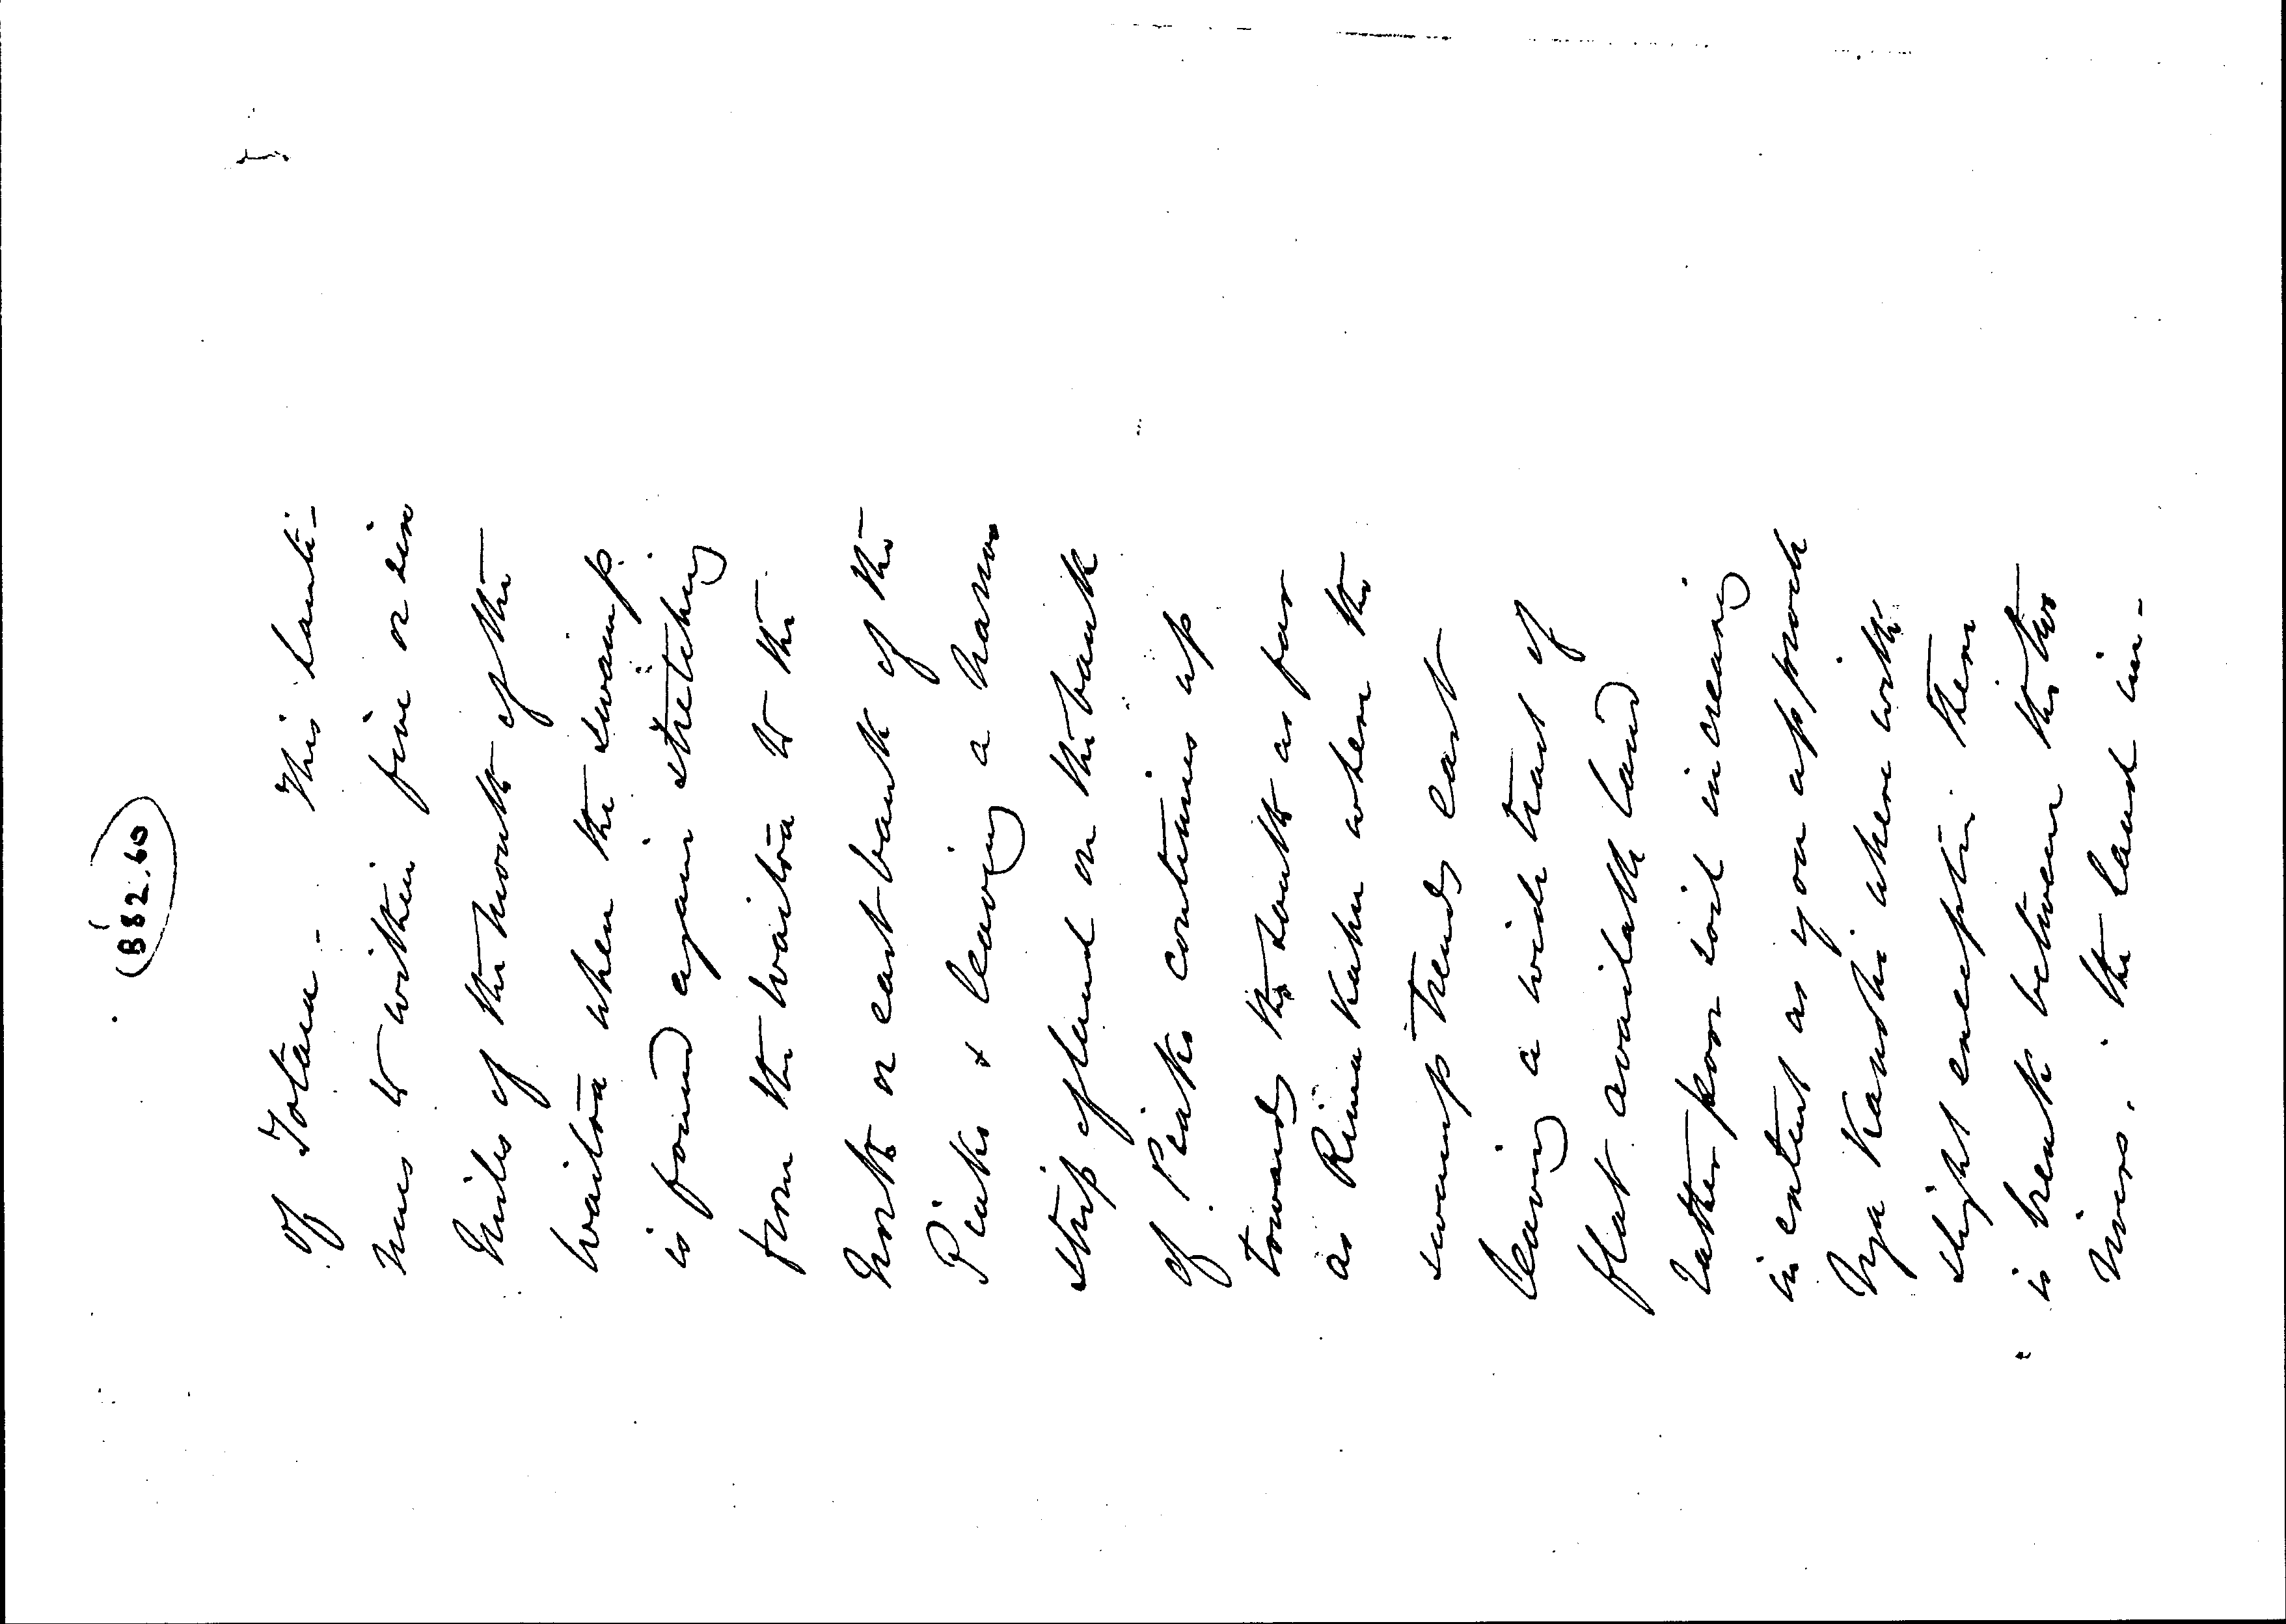 (882.60
of Totara - This conti-
nues to within five or six
miles of the mouth of the
Waitoa when the swamp
is found again stretching
from the Waitoa to the
North or east bank of the
Piako & leaving a narrow
strip of land on the bank
of Piako continues up
towards the south as far
as Rima Kahu when the
swamp trends east
leaving a wide tract of
flat available land
rather poor soil increasing
in extent as you approach
Nga Kauwhi where with
slight exception there
is break between the two
rivers. the land in-